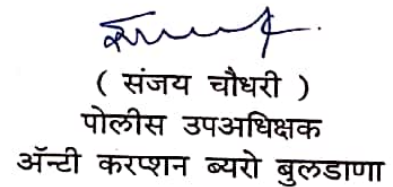 ( संजय चौधरी )
पोलीस उपअधिक्षक
ॲन्टी करप्शन ब्यरो बुलडाणा